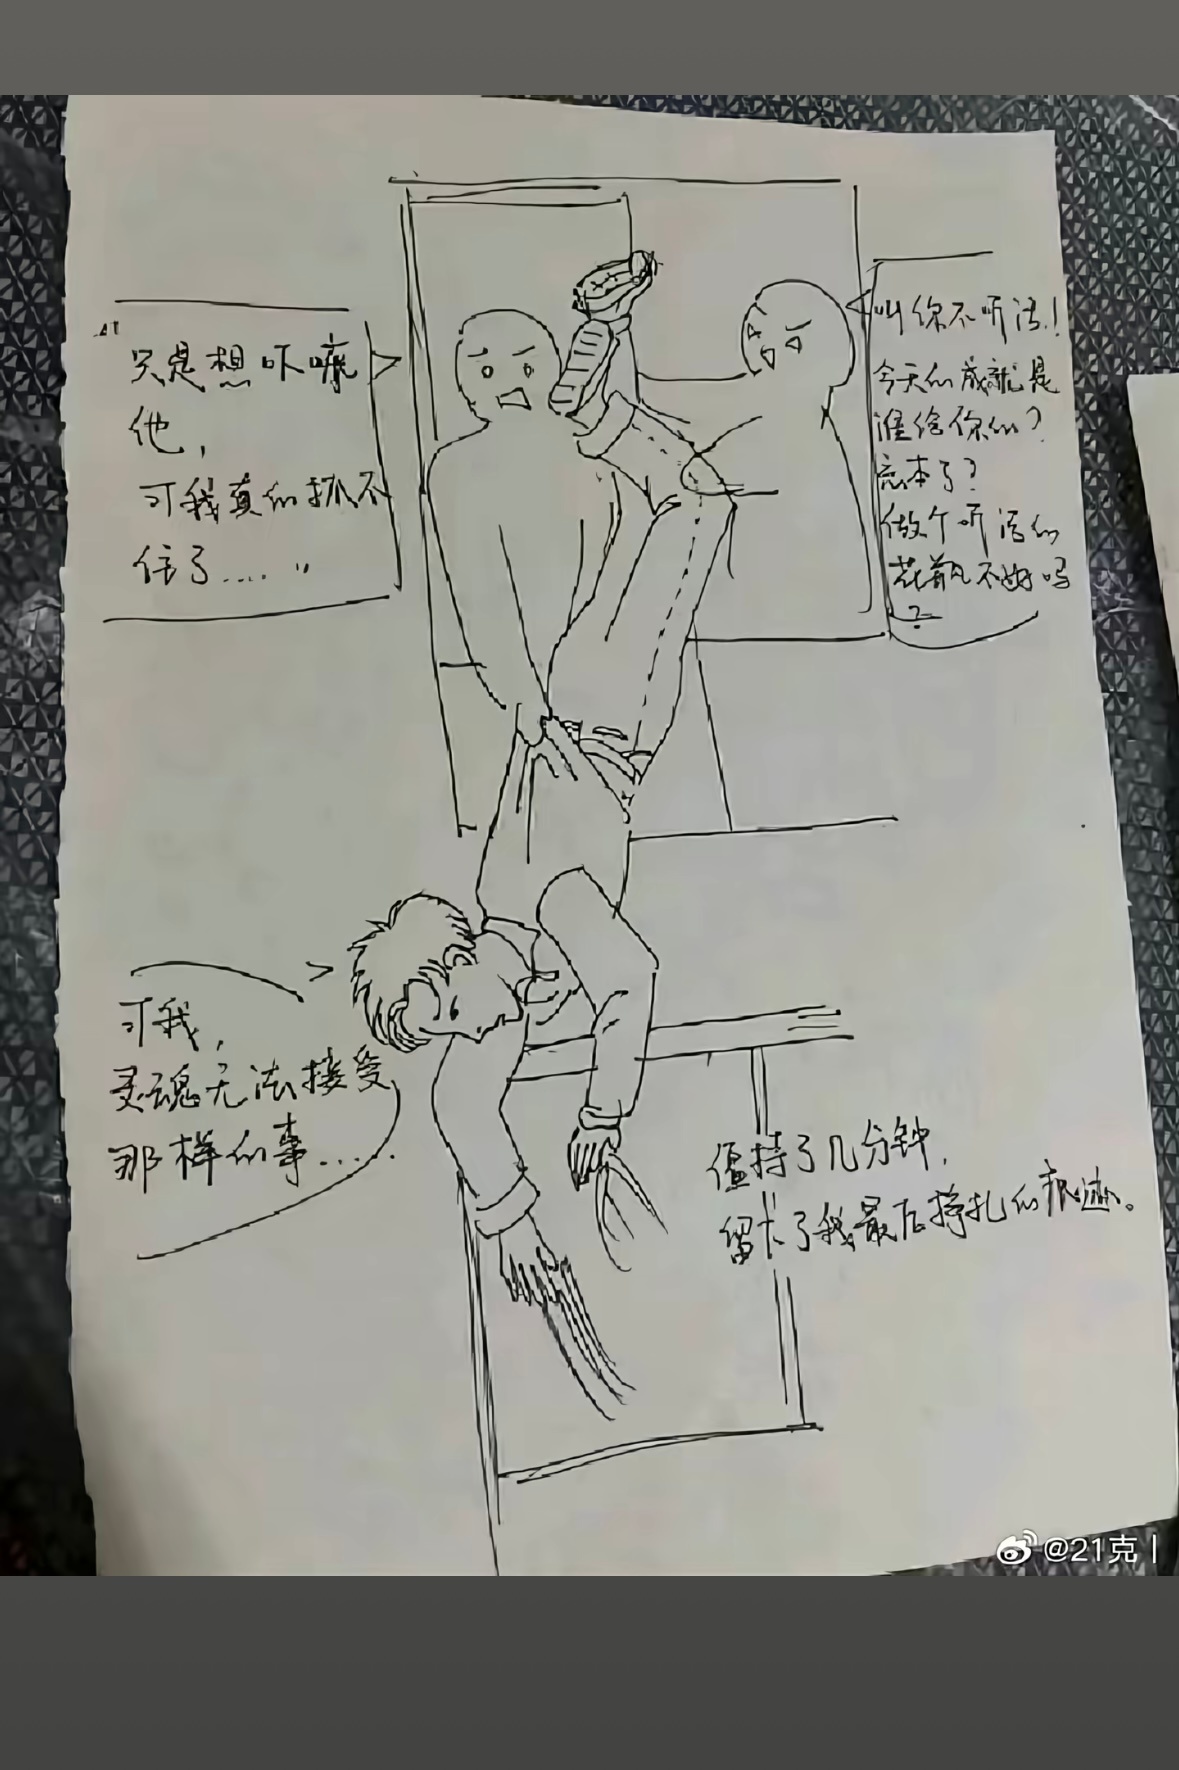 只是想吓唬
他,
可我真的抓不
住了……"
叫你不听话!
今天的成就是
谁给你的?
忘本了?
做个听话的
花瓶不好吗
?
可我,
灵魂无法接受
那样的事……
僵持了几分钟,
留下了我最后挣扎的痕迹。
@21克丨